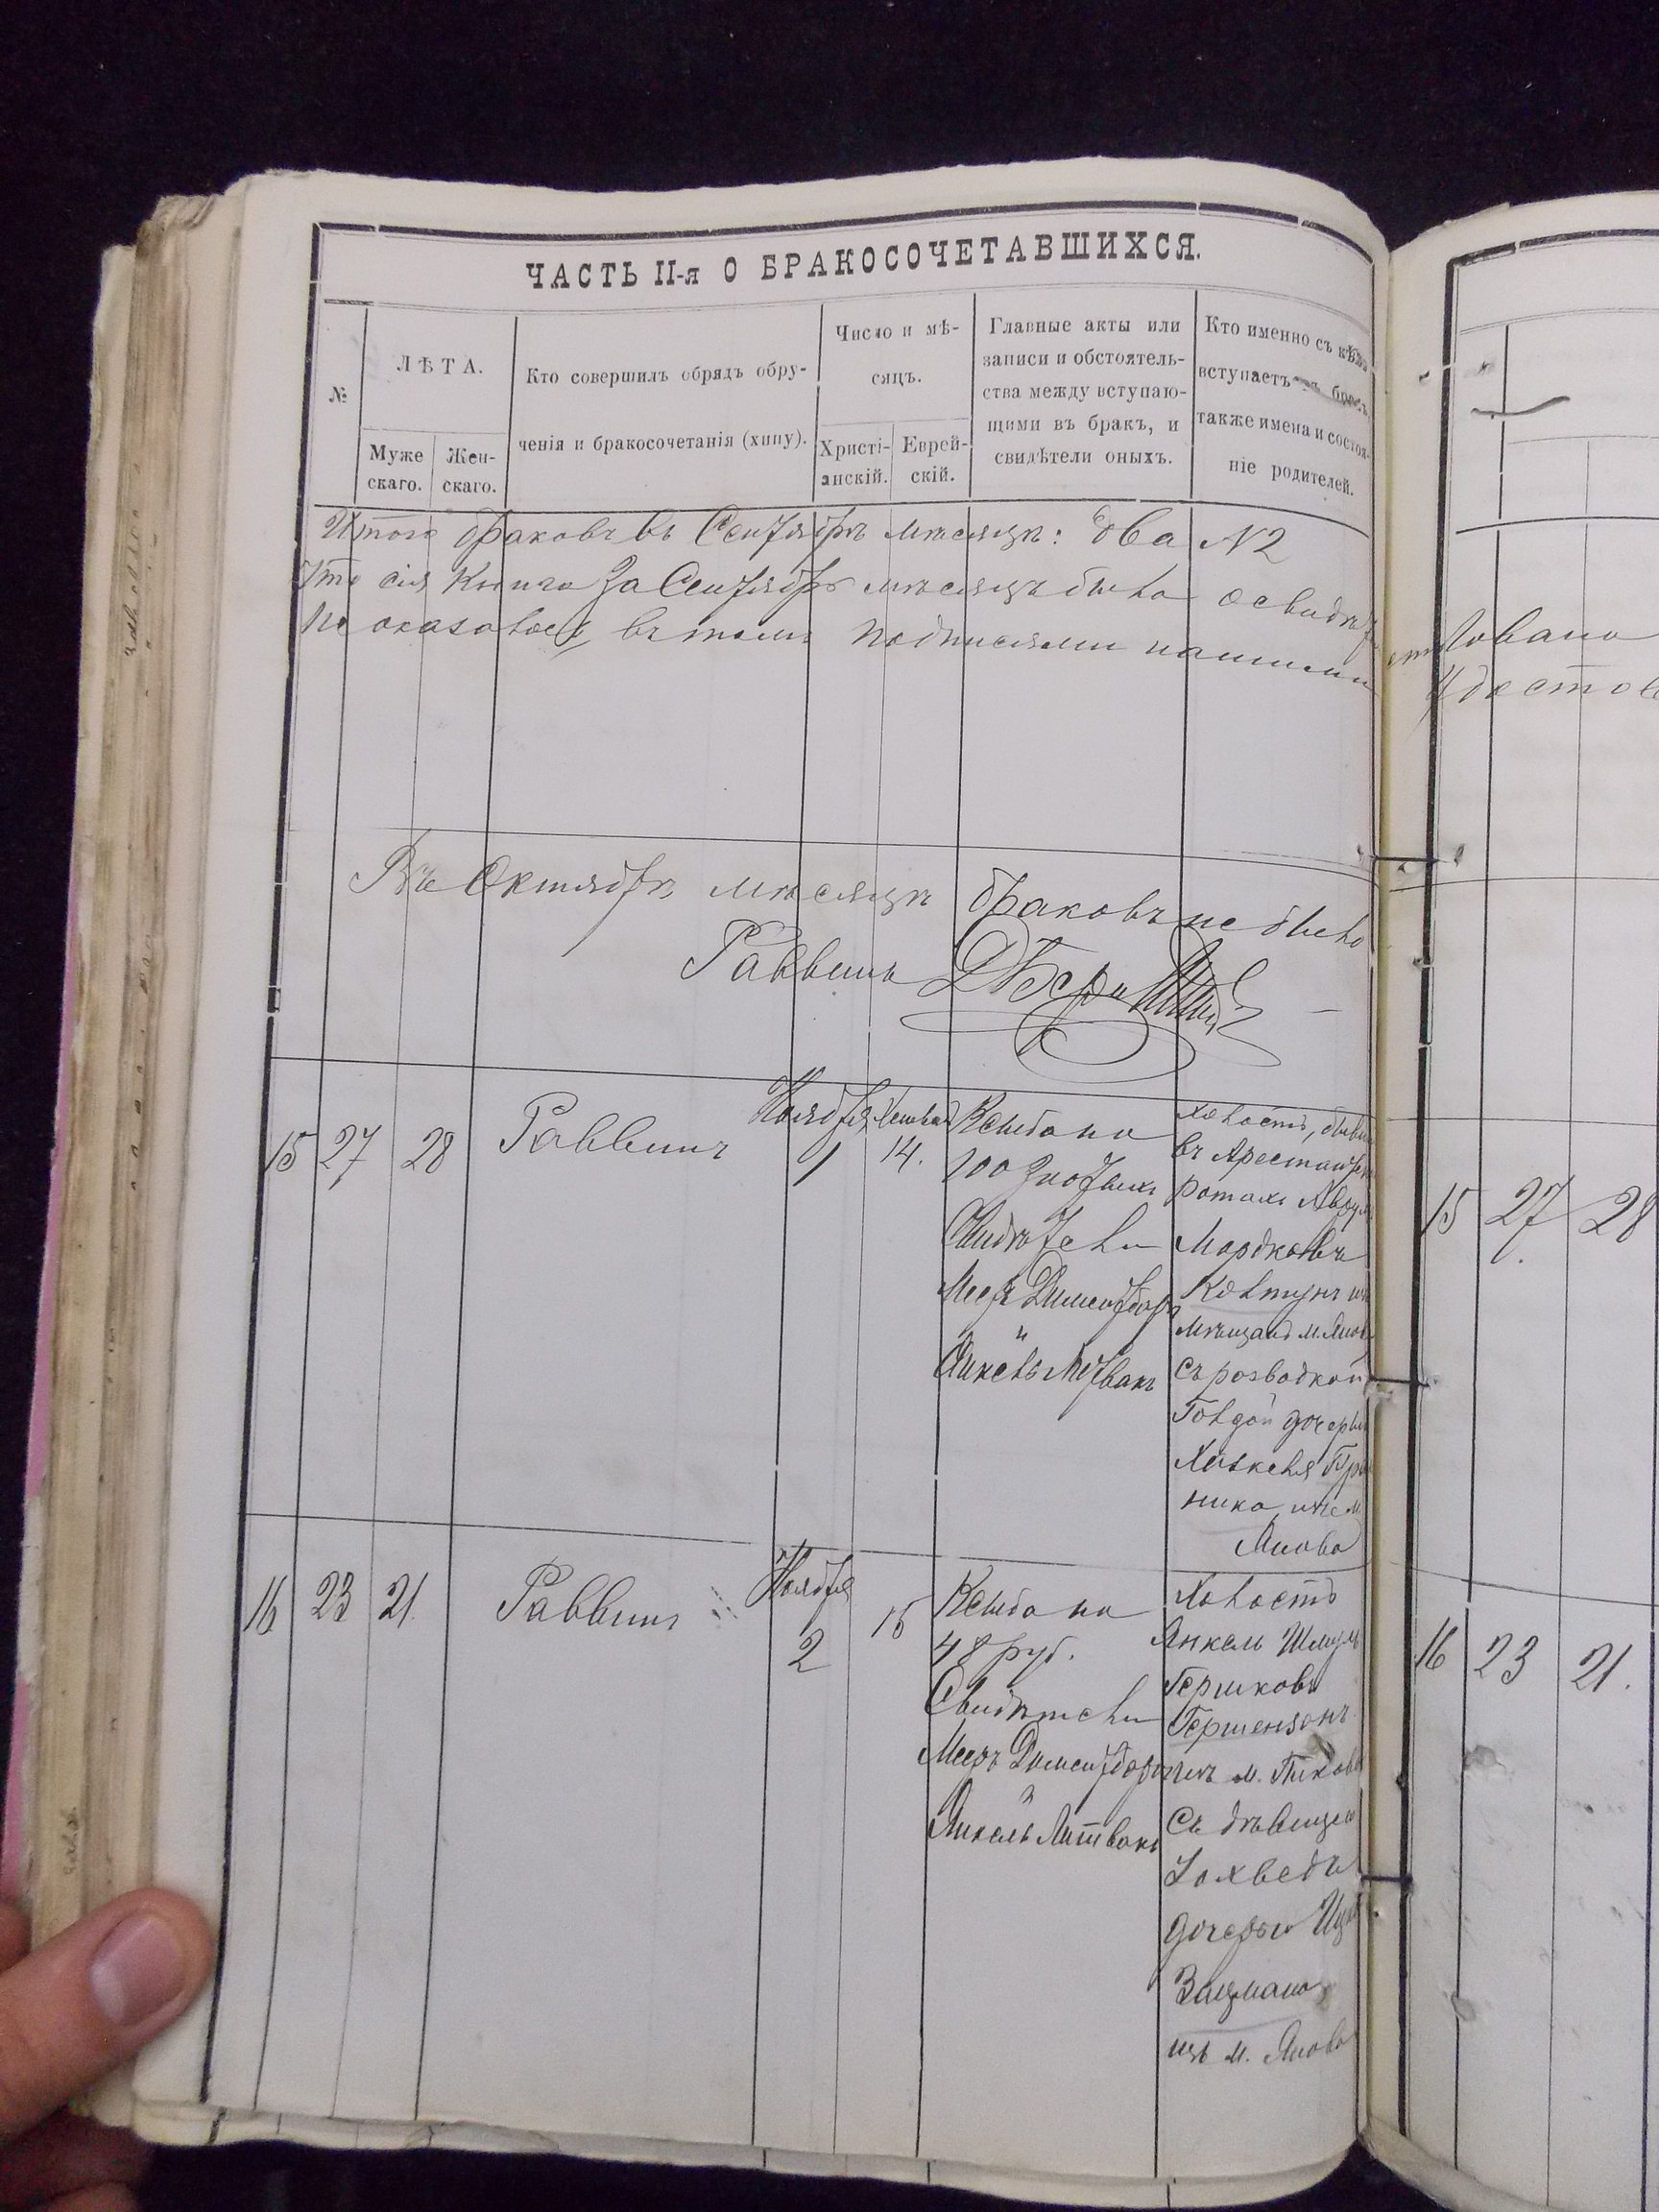 ЧАСТЬ II-я О БРАКОСОЧЕТАВШИХСЯ.
№
ЛѢТА.
Муже
скаго.
Жен-
скаго.
Кто совершилъ обрядъ обру-
ченія и бракосочетанія (хипу).
Число и мѣ-
сяцъ.
Христі-
анскій.
Еврей-
скій.
Главные акты или
записи и обстоятель-
ства между вступаю-
щими въ бракъ, и
свидѣтели оныхъ.
Кто именно съ кѣмъ
вступаетъ въ бракъ,
также имена и состоя-
ніе родителей.
Итого браковъ въ Сентябрѣ мѣсяцѣ: два N2
Что сія книга за Сентябрь мѣсяцъ была освидѣт
не оказалось, въ томъ подписями нашими
Въ Октябрѣ мѣсяцѣ браковъ не было
Раввинъ
15 27 28 Раввинъ
Ноября
1
14.
Ксибана
100 злотыхъ
Свидѣтели
Мееръ
и
Литвакъ
Холостъ,
въ Арестант
ротахъ
Мордковъ
Колтунъ
мѣщанъ м. Янов
съ розводкой
Голдой дочерью
нико изъ м
Янова
16 23 21. Раввинъ
Ноября
2
15
Ксибана
48 руб.
Свидѣтели
Мееръ
и
Янкель Литвакъ
Холостъ
Янкель Шмуль
Гершковъ
Гершензонъ
изъ м. Пикова
съ дѣвицею
дочерью
Зацмана
изъ м. Янова
товано
удостов
15 27 28
16 23 21.